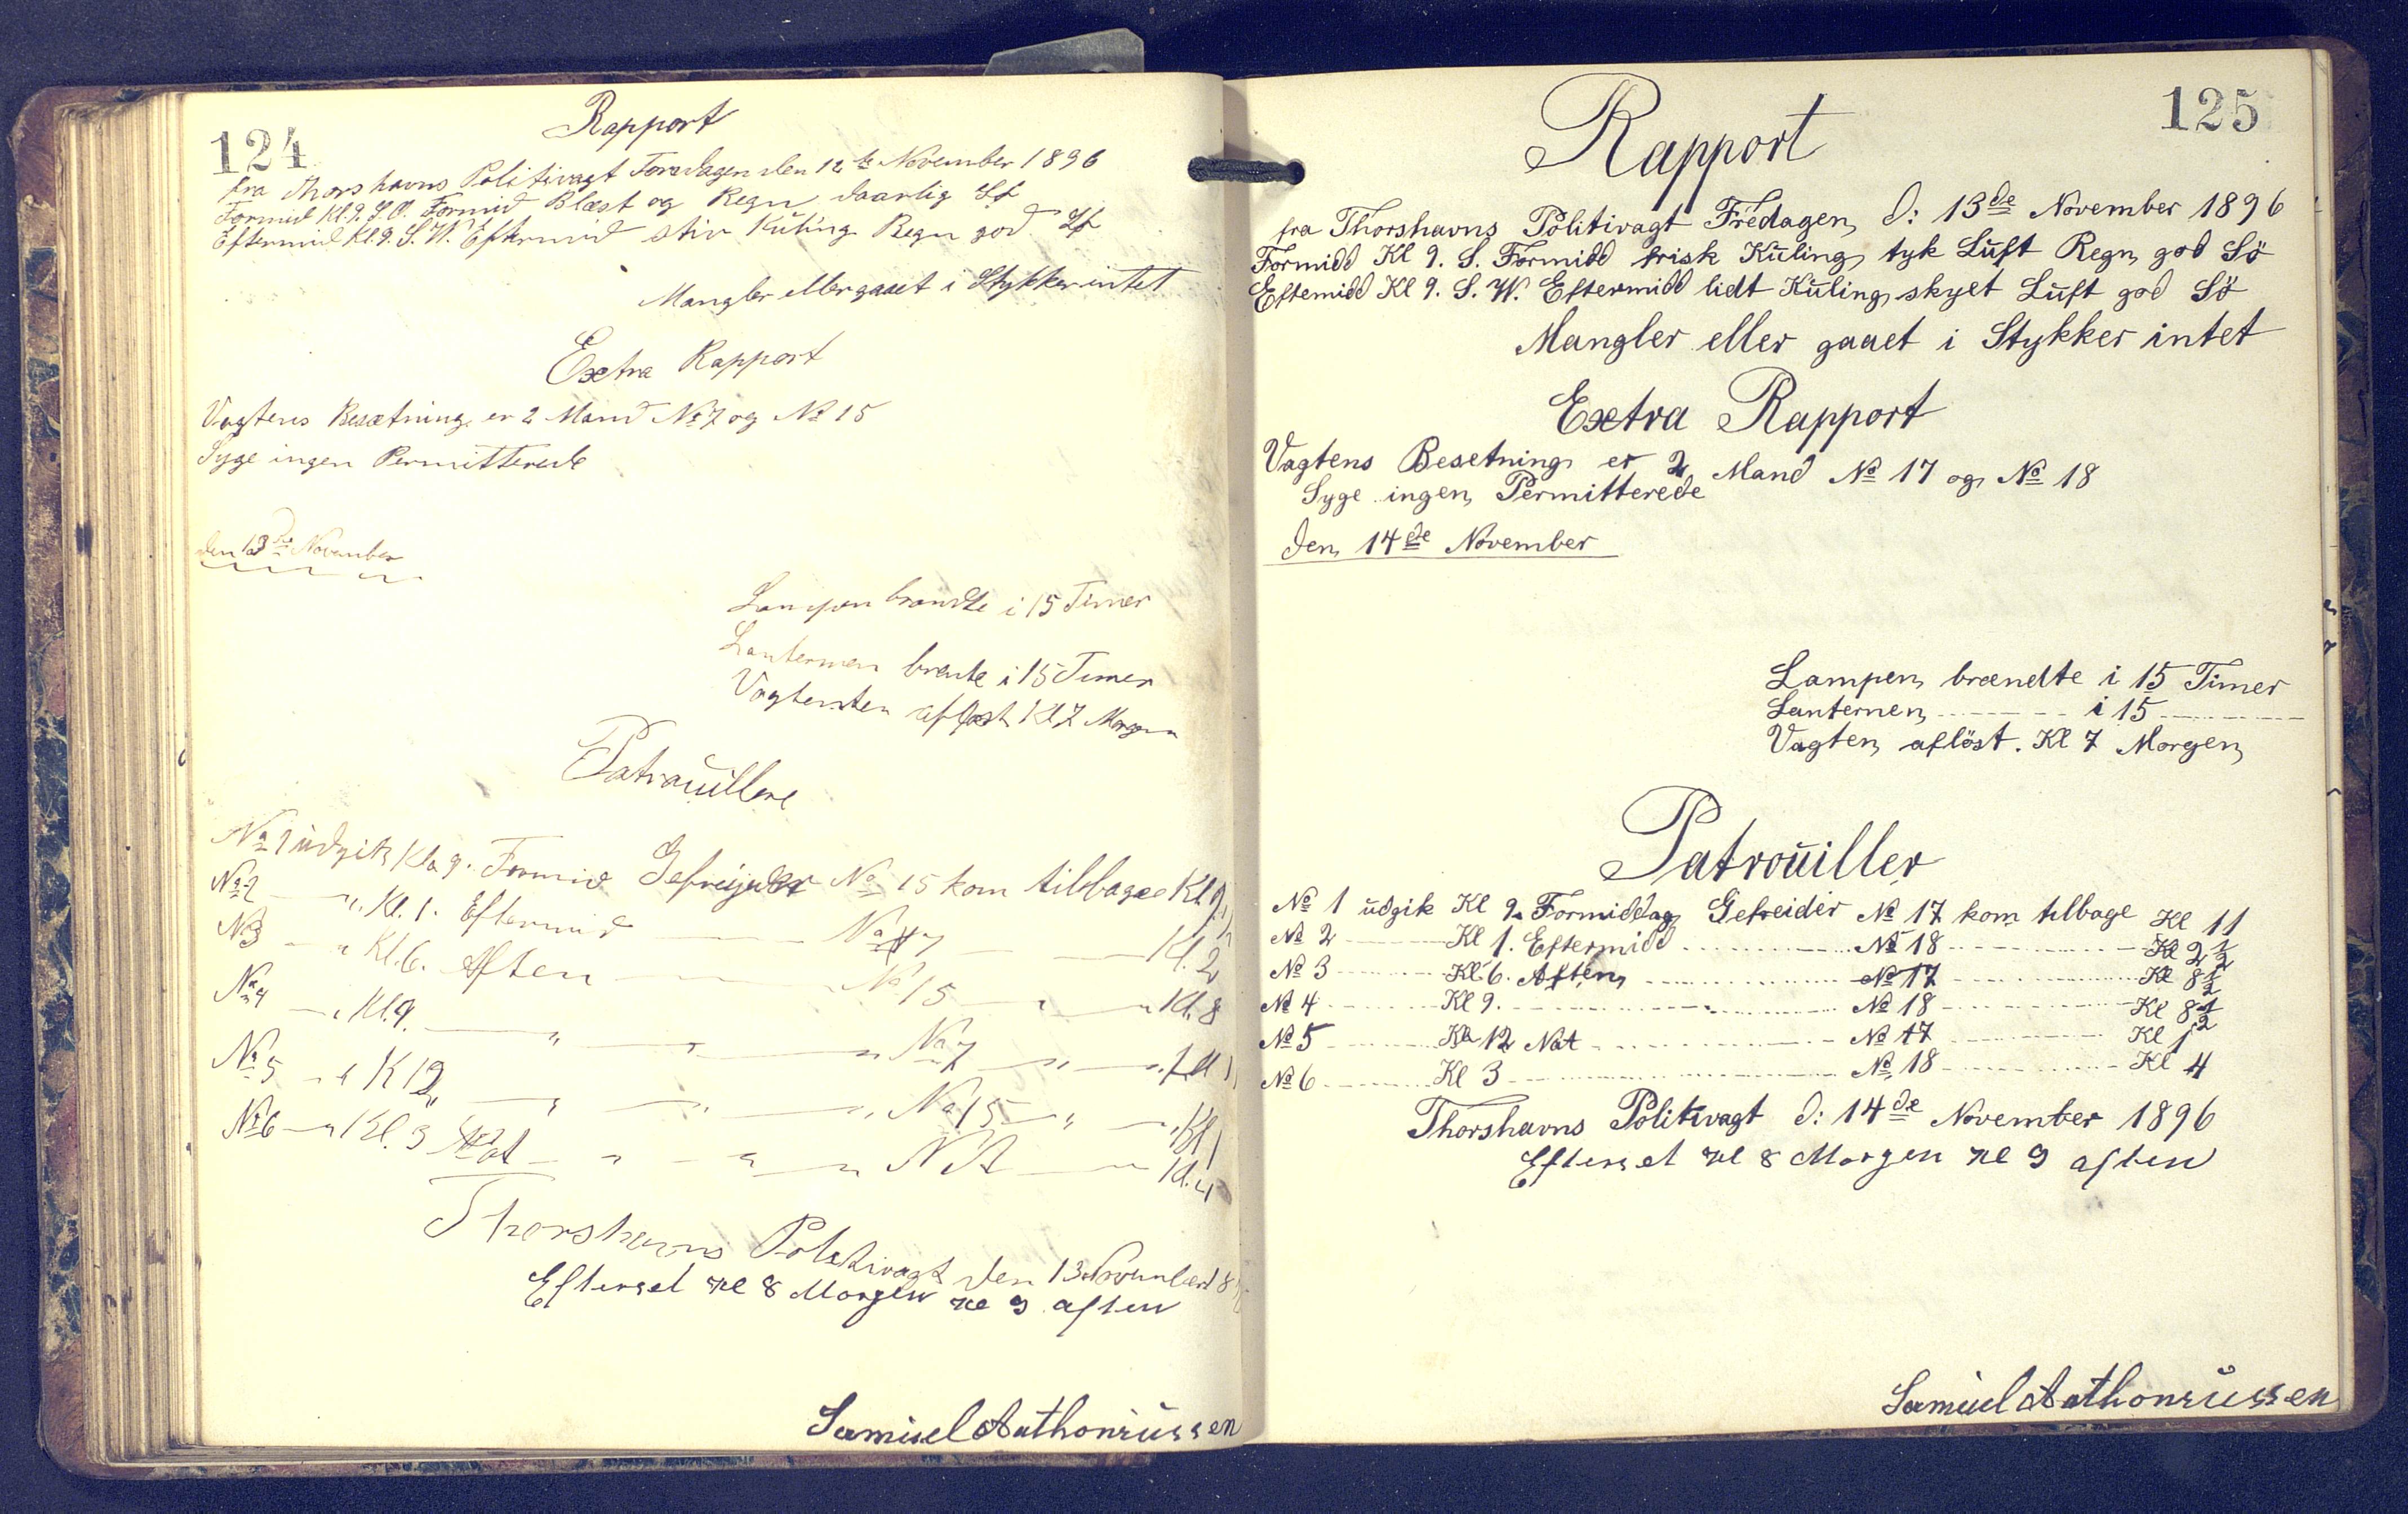 124
Rapport
fra Thorshavns Politivagt Torsdagen den 12te November 1896
Formid Kl. 9. S.O. Formid Blæst og Regn daarlig Sö
Eftermid Kl. 9. S.W. Eftermid stiv Kuling Regn god Sö
Mangler eller gaaet i Stykker intet
Extra Rapport
Vagtens Besætning er 2 Mand No 7 og No 15
Syge ingen Permitterede
den 13de November
Lampen brændte i 15 Timer
Lanternen brente i 15 Timer
Vagten aflöst Kl 7 Morgen
Patrouillere
No 1 udgik Kl 9. Formid Gefrejder No 15 kom tilbage Kl
No 2 — " Kl. 1. Eftermid — No 7 — Kl. 2
No 3 — " Kl. 6. Aften — No 15 — " — Kl. 8
No 4 — " Kl. 9. — " — " — " No 7 — " —
No 5 — " K 12 — " — " — " No 15 — " — Kl 1
No 6 — " Kl. 3 Nat — " — " — " No 7 — " Kl. 4
Thorshavns Politivagt den 13 November 18
Efterset Kl 8 Morgen Kl 9 aften
Samuel Anthoniussen
125
Rapport
fra Thorshavns Politivagt Fredagen d: 13de November 1896
Formidd Kl 9. S. Formidd frisk Kuling tyk Luft Regn god Sö
Eftemidd Kl 9. S. W. Eftermidd lidt Kuling skyet Luft god Sö
Mangler eller gaaet i Stykker intet
Extra Rapport
Vagtens Besetning er 2 Mand No 17 og No 18
Syge ingen Permitterede
den 14de November
Lampen brændte i 15 Timer
Lanternen -------- i 15 --------
Vagten aflöst. Kl 7 Morgen
Patrouiller
No 1 udgik Kl 9. Formiddag Gefreider No 17 kom tilbage Kl 11
No 2 -------- Kl 1. Eftermidd -------- No 18 -------- Kl 2 1/2
No 3 -------- Kl. 6. Aften -------- No 17 -------- Kl 8 1/2
No 4 -------- Kl 9. -------- No 18 -------- Kl 8 1/2
No 5 -------- Kl 12 Nat -------- No 17 -------- Kl 1
No 6 -------- Kl 3 -------- No 18 -------- Kl 4
Thorshavns Politivagt d: 14de November 1896
Efterset Kl 8 Morgen Kl 9 aften
Samuel Anthoniussen